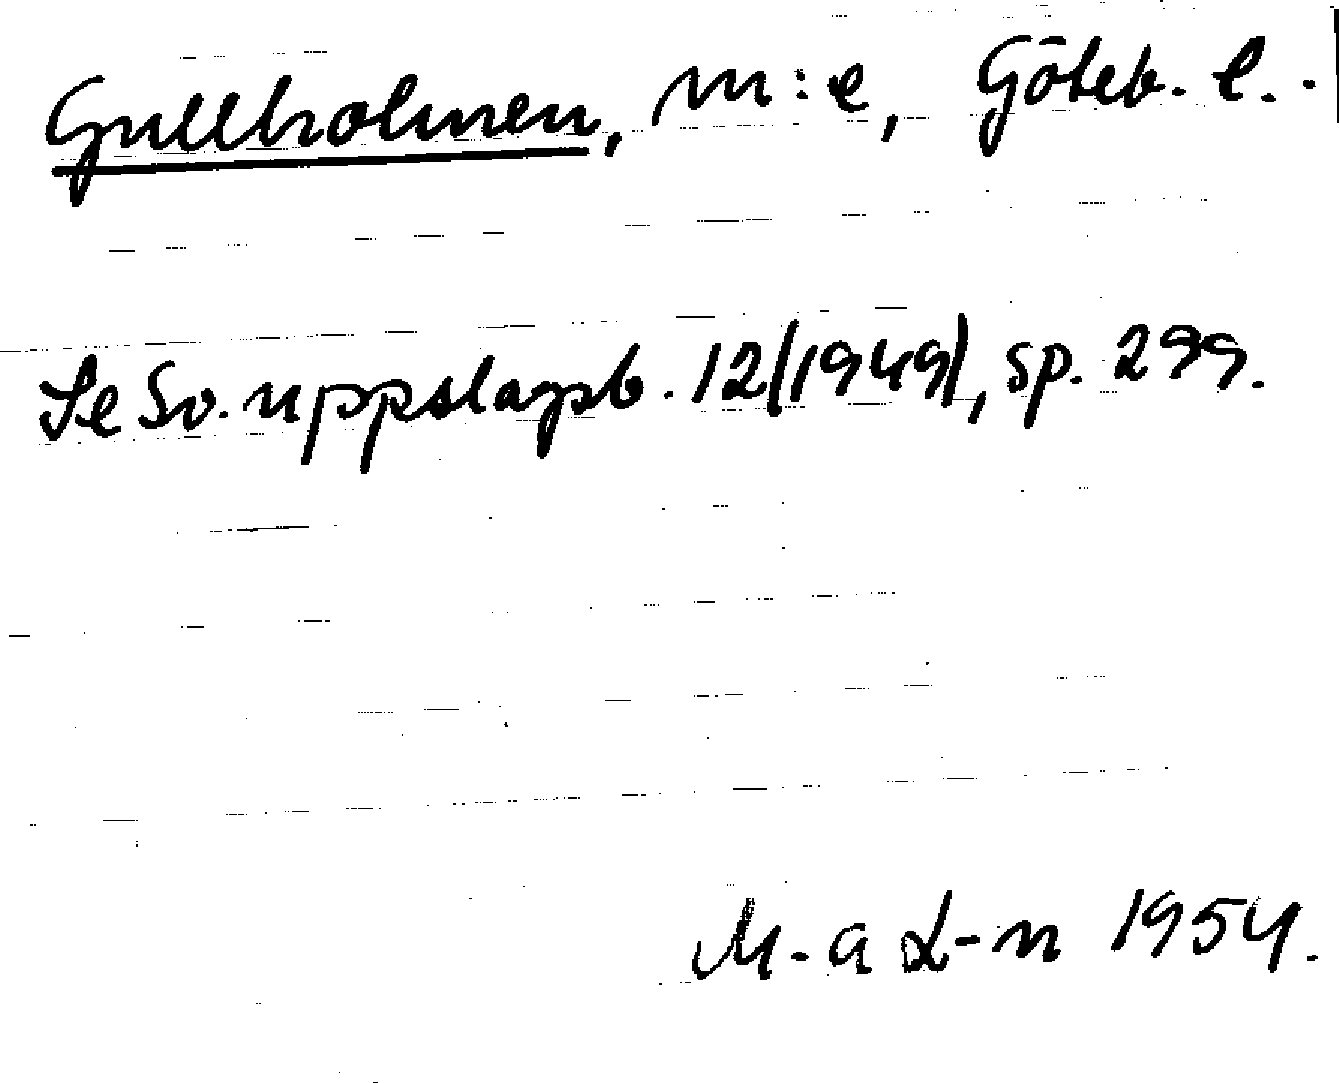 Gullholmen, m:e, Göteb. l.
Se Sv. uppslagsb. 12(1949), sp. 299.
M-a L-n 1954.